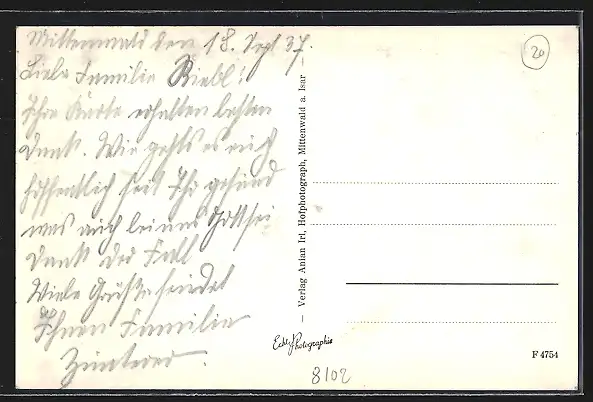 Mittenwald den 18. Sept 37.
Liebe Familie Riebl!
Ihre Karte erhalten besten
Dank. Wie gehts es euch
hoffentlich seit Ihr gesund
was auch bei uns Gottsei
Dank der Fall
Viele Grüße sendet
Ihnen Familie
20
– Verlag Anlan Irl, Hofphotograph, Mittenwald a. Isar
Echte Photographie
F 4754
8102